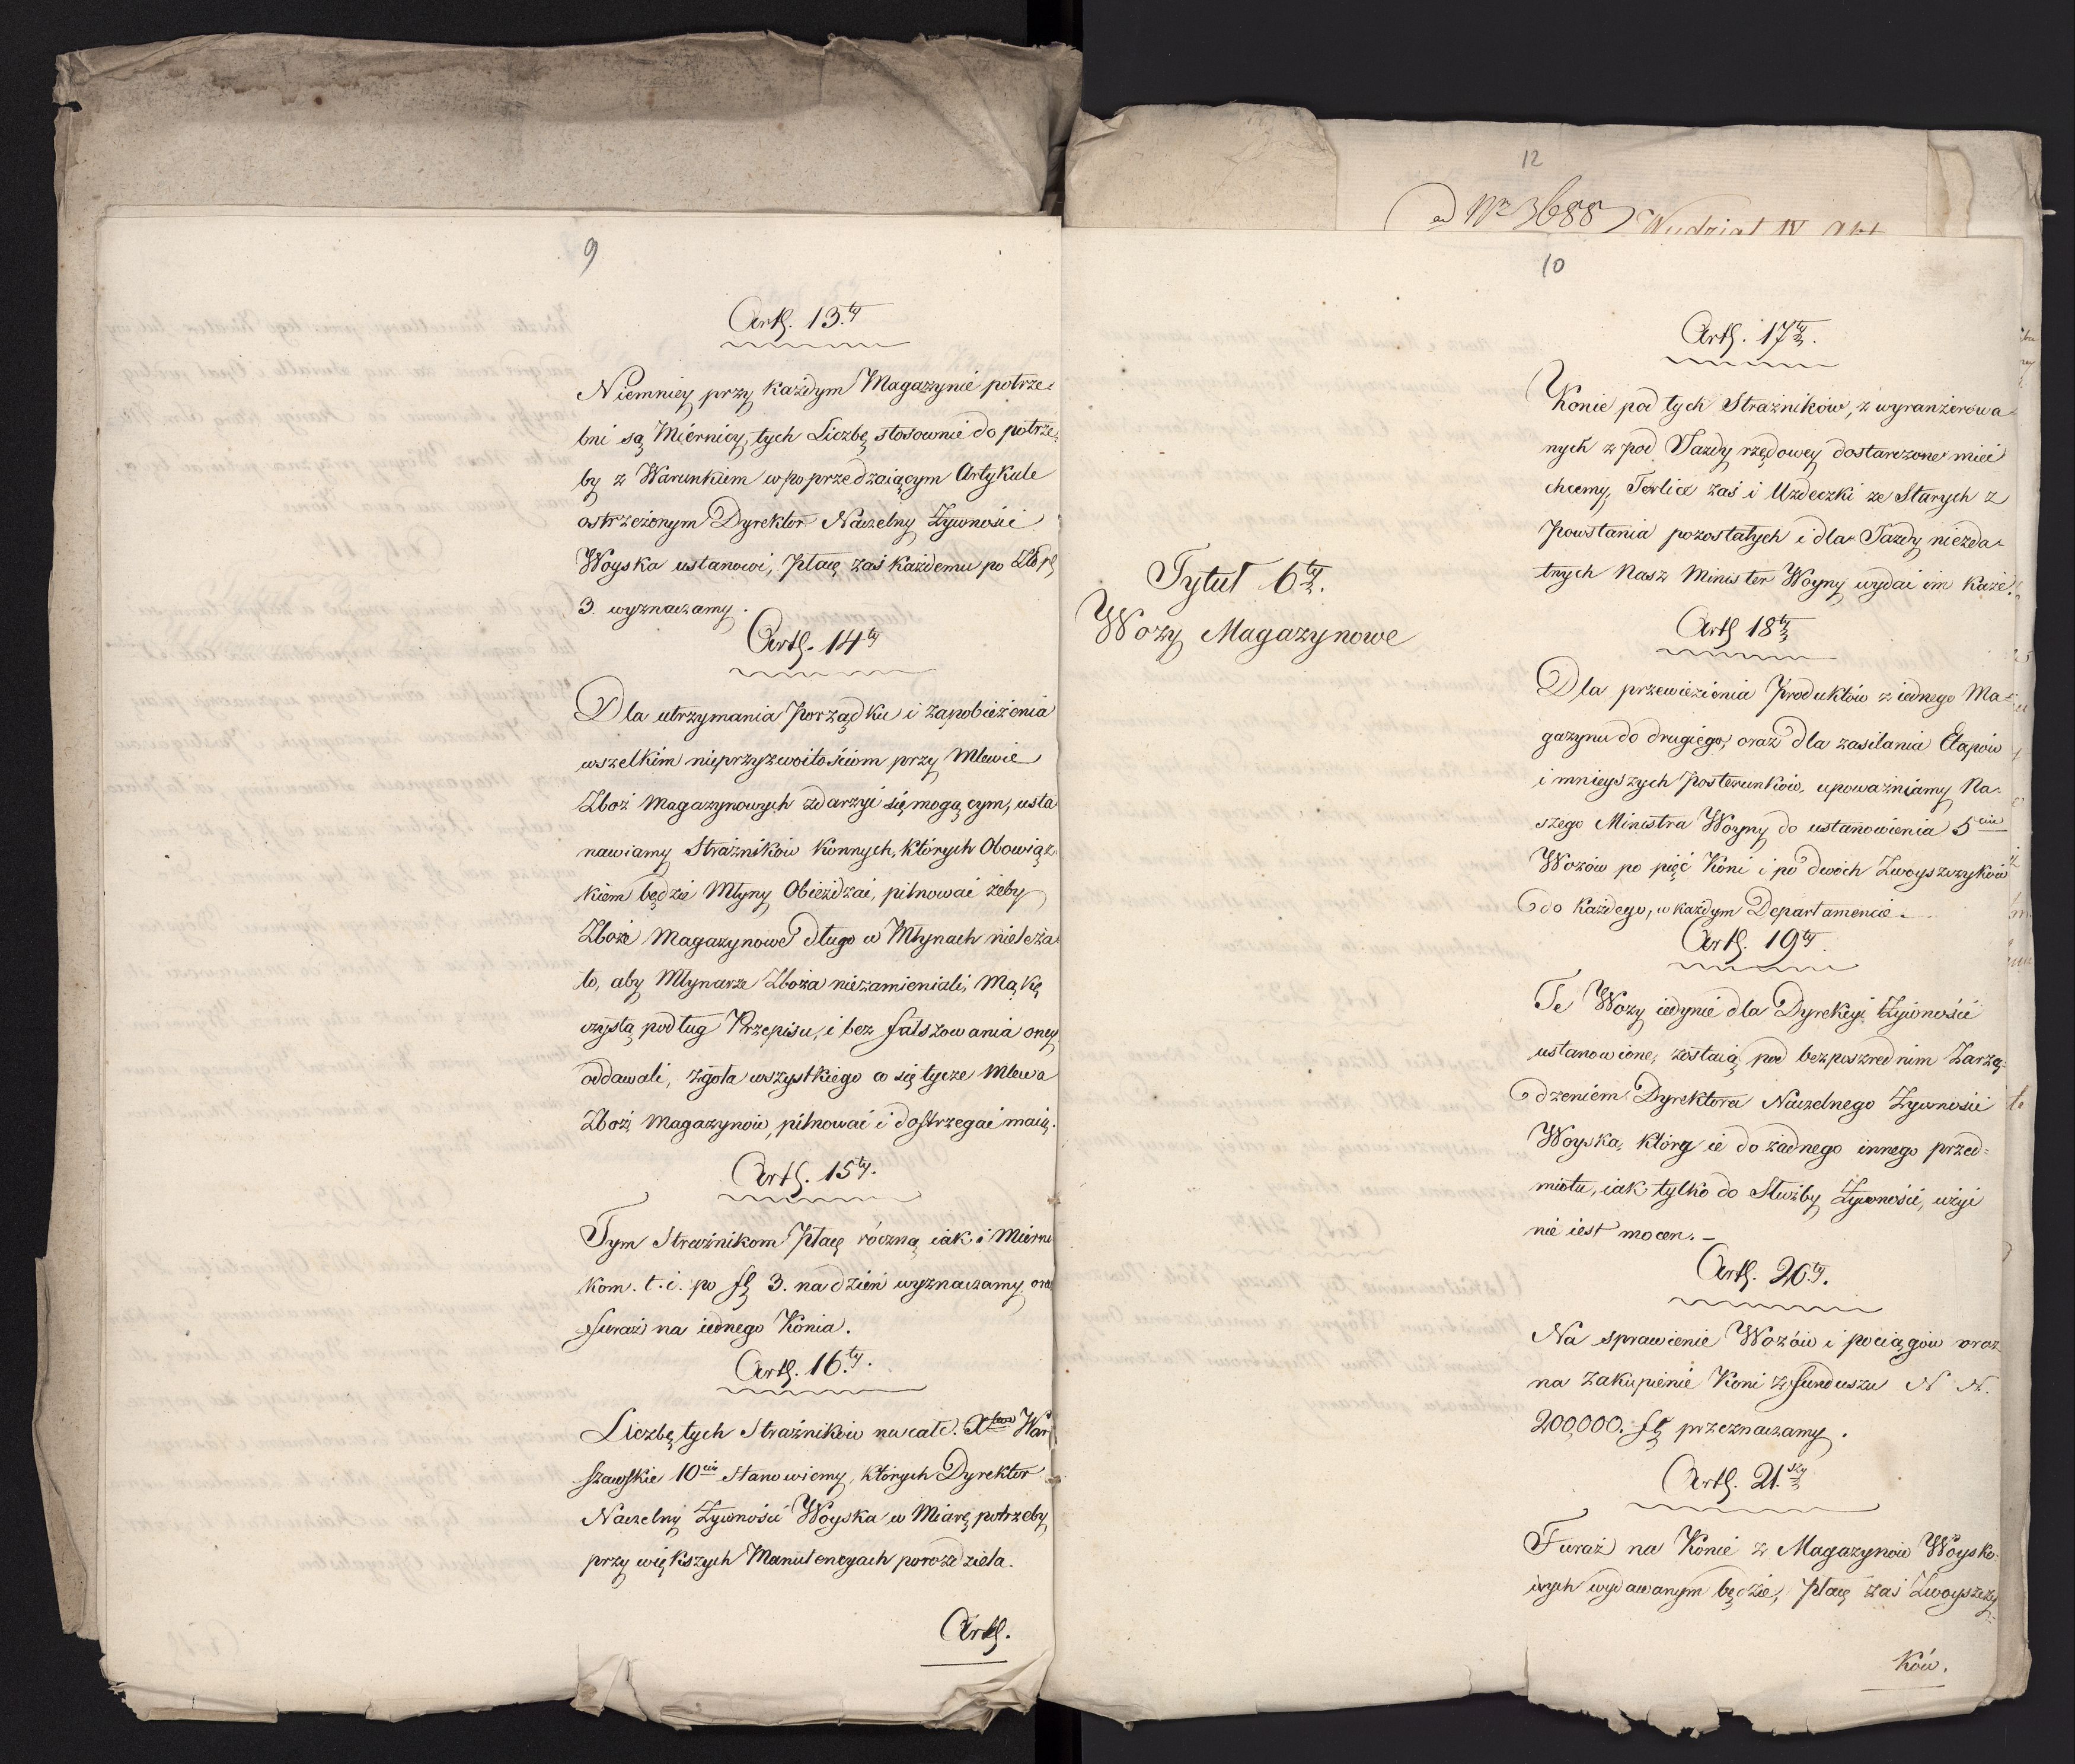 9
Artł. 13.ty
Niemniey przy każdym Magazynie potrze-
bni są Miernicy, tych Liczbę stosownie do potrze-
by z Warunkiem w poprzedzaiącym Artykule
ostrzeżonym Dyrektor Naczelny Żywności
Woyska ustanowi, Płacę zaś każdemu po Złp
3 wyznaczamy.
Artł. 14ty
Dla utrzymania Porządku i zapobieżenia
wszelkim nieprzyzwoitościom przy Mlewie
Zboż Magazynowych zdarzyć się mogącym, usta
nawiamy Strażników konnych, których Obowiąz-
kiem będzie Młyny Obieżdzać, pilnować żeby
Zboże Magazynowe długo w Młynach nieleża-
ło, aby Młynarze Zboża niezamieniali, Mąkę
czystą podług Przepisu, i bez fałszowania oney
oddawali, zgoła wszystkiego co się tycze Mlewa
Zboż Magazynów, pilnować i dostrzegać maią.
Artł. 15ty.
Tym Strażnikom Płacę róczną iak i Mierni
kom. t. i. po fl 3. na dzień wyznaczamy, oraz
furaż na iednego Konia.
Artł. 16.ty.
Liczbę tych Strażników na całe Xtwo War
szawskie 10ciu Stanowiemy, których Dyrektor
Naczelny Żywności Woyska w Miarę potrzeby
przy większych Manutencyach porozdziela.
Artł.
12
ad Nro 3688 Wydział IV
10
Artł. 17ty.
Konie pod tych Strażników, z wyranżerowa-
nych z pod Jazdy rzędowey dostarczone mieć
chcemy, Terlice zaś i Uzdeczki ze Starych z
Powstania pozostałych i dla Jazdy niezda-
tnych Nasz Minister Woyny wydać im każe.
Tytuł 6ty.
Wozy Magazynowe
Artł 18ty
Dla przewiezienia Produktów z iednego Ma-
gazynu do drugiego, oraz dla zasilania Etapów
i mnieyszych Posterunków, upoważniamy Na-
szego Ministra Woyny do ustanowienia 5ciu
Wozów po pięć Koni i po dwóch Zwoyszczyków
do każdego, w każdym Departamencie.
Artł. 19ty.
Te Wozy iedynie dla Dyrekcyi Żywności
ustanowione, zostaią pod bezposzrednim Zarzą-
dzeniem Dyrektora Naczelnego Żywności
Woyska, który ie do żadnego innego przed-
miotu, iak tylko do Służby Żywności, użyć
nie iest mocen. -
Artł. 20.ty.
Na sprawienie Wozów i pociągów oraz
na zakupienie Koni z funduszu N N.
200,000. fl przeznaczamy.
Artł. 21.szy
Furaż na Konie z Magazynów Woysko-
wych wydawanym będzie, Płacę zaś Zwoyszczy-
ków.